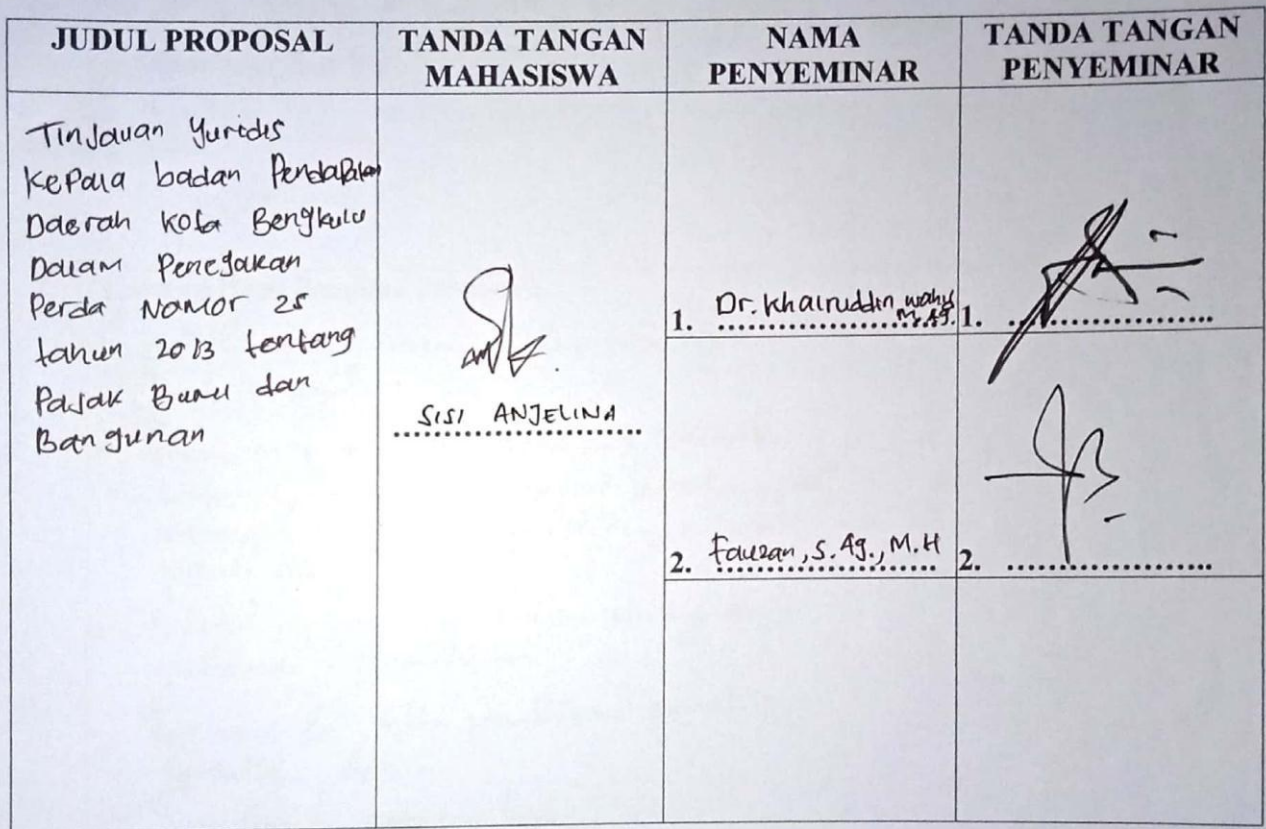 JUDUL PROPOSAL
TANDA TANGAN
MAHASISWA
NAMA
PENYEMINAR
TANDA TANGAN
PENYEMINAR
Tinjauan Yuridis
Kepala badan Pendapatan
Daerah Kota Bengkulu
Dalam Penegakan
Perda Nomor 25
tahun 2013 tentang
Pajak Bumi dan
Bangunan
SISI ANJELINA
1. Dr. Khairuddin wahid
M.Ag.
1.
2. Fauzan, S.Ag., M.H
2.